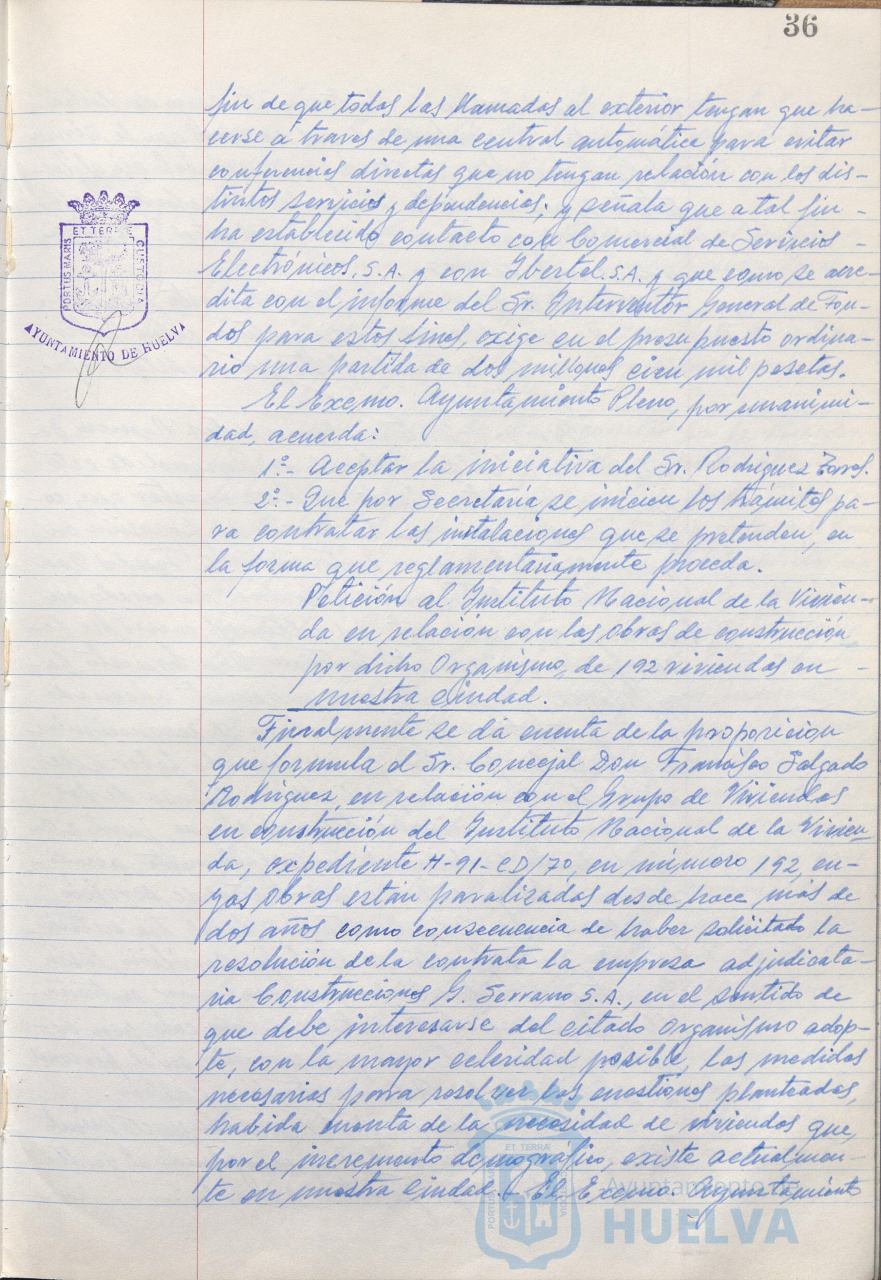 36
fin de que todas las llamadas al exterior tengan que ha-
cerse a traves de una central automática para evitar
conferencias directas que no tengan relación con los dis-
tintos servicios y dependencias. y señala que a tal fin -
ha establecido contacto con Comercial de Servicios -
Electrónicos, S.A. y con Ibertel. S.A. y que como se acre-
dita con el informe del Sr. Interventor General de Fon-
dos para estos fines, exige en el presupuesto ordina-
rio una partida de dos millones cien mil pesetas.
El Excmo. Ayuntamiento Pleno, por unanimi-
dad, acuerda:
1º.- Aceptar la iniciativa del Sr. Rodriguez
2º.- Que por Secretaría se inicien los trámites pa-
ra contratar las instalaciones que se pretenden, en
la forma que reglamentariamente proceda.
Petición al Instituto Nacional de la Vivien-
da en relación con las obras de construcción
por dicho Organismo, de 192 viviendas en -
nuestra Ciudad.
Finalmente se dá cuenta de la proposicion
que formula el Sr. Concejal Don Francisco Salgado
Rodriguez, en relación con el Grupo de Viviendas
en construcción del Instituto Nacional de la Vivien-
da, expediente H-91-CD/70, en número 192, cu-
yas obras están paralizadas desde hace más de
dos años como consecuencia de haber solicitado la
resolución de la contrata la empresa adjudicata-
ria Construcciones G. Serrano S.A., en el sentido de
que debe interesarse del citado Organismo adop-
te, con la mayor celeridad posible, las medidas
necesarias para resolver las cuestiones planteadas,
habida cuenta de la necesidad de viviendas que,
por el incremento demográfico, existe actualmen-
te en nuestra Ciudad. El Excmo. Ayuntamiento
PORTUS MARIS ET TERRAE CUSTODIA
AYUNTAMIENTO DE HUELVA
PORTUS MARIS ET TERRAE CUSTODIA
Ayuntamiento de
HUELVA